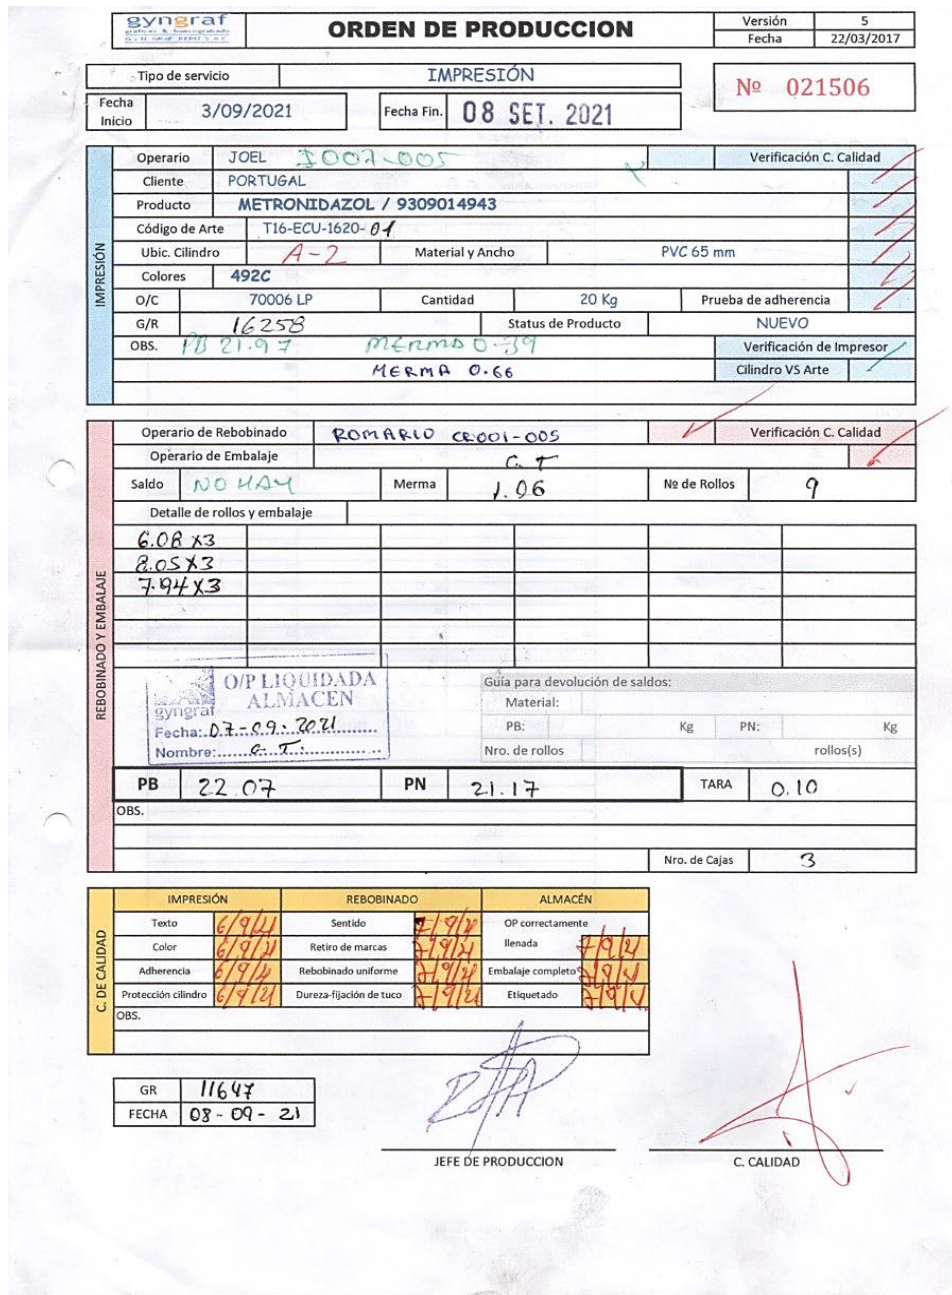 gyngraf
ORDEN DE PRODUCCION
Versión 5
Fecha 22/03/2017
Tipo de servicio IMPRESIÓN
Nº 021506
Fecha Inicio 3/09/2021 Fecha Fin. 08 SET. 2021
IMPRESIÓN
Operario JOEL I007-005 Verificación C. Calidad
Cliente PORTUGAL
Producto METRONIDAZOL / 9309014943
Código de Arte T16-ECU-1620-01
Ubic. Cilindro A-2 Material y Ancho PVC 65 mm
Colores 492C
O/C 70006 LP Cantidad 20 Kg Prueba de adherencia
G/R 16258 Status de Producto NUEVO
OBS. PB 21.97 MERMA 0.39 Verificación de Impresor
MERMA 0.66 Cilindro VS Arte
REBOBINADO Y EMBALAJE
Operario de Rebobinado ROMARIO CR001-005 Verificación C. Calidad
Operario de Embalaje C. T
Saldo NO HAY Merma 1.06 Nº de Rollos 9
Detalle de rollos y embalaje
6.08 x3
8.05 x3
7.94 x3
O/P LIQUIDADA
ALMACEN
gyngraf
Fecha: 07-09-2021
Nombre: C. T.
Guía para devolución de saldos:
Material:
PB: Kg PN: Kg
Nro. de rollos rollos(s)
PB 22.07 PN 21.17 TARA 0.10
OBS.
Nro. de Cajas 3
C. DE CALIDAD
IMPRESIÓN REBOBINADO ALMACÉN
Texto 6/9/21 Sentido 7/9/21 OP correctamente llenada 7/9/21
Color 6/9/21 Retiro de marcas 7/9/21
Adherencia 6/9/21 Rebobinado uniforme 7/9/21 Embalaje completo 7/9/21
Protección cilindro 6/9/21 Dureza-fijación de tuco 7/9/21 Etiquetado 7/9/21
OBS.
GR 11647
FECHA 08-09-21
JEFE DE PRODUCCION C. CALIDAD